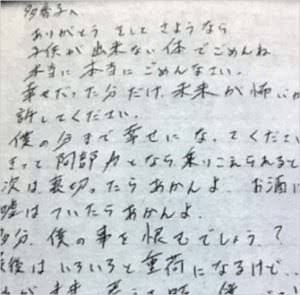 多香子へ
ありがとう そして さようなら
子供が出来ない体でごめんね
本当に 本当に ごめんなさい。
幸せだった分だけ、未来が怖いか
許してください。
僕の分まで幸せになってくださ
きっと 阿部力となら乗りこえられると
次は、裏切ったらあかんよ お酒に
嘘はついたらあかんよ。
多分、僕の事を恨むでしょう?
最後はいろいろと重荷になるけど..